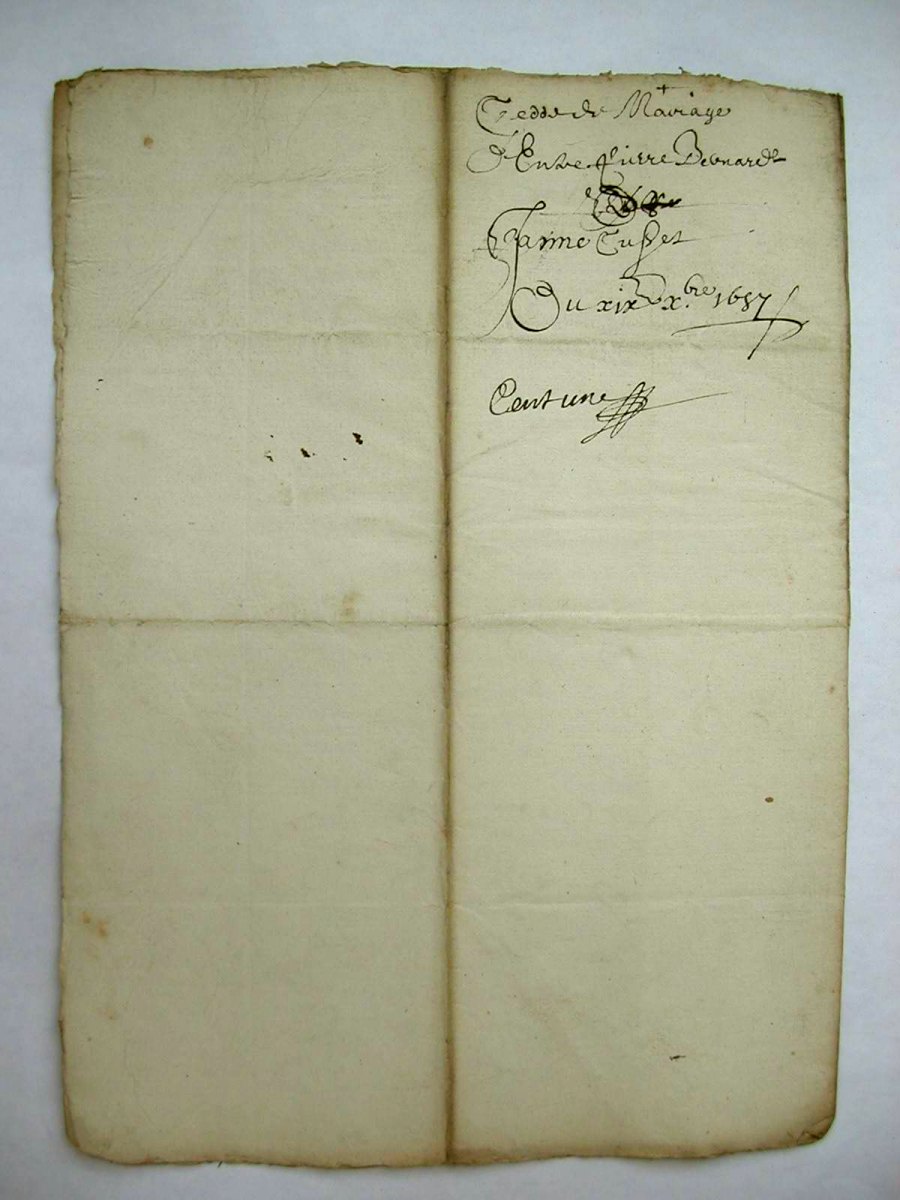 Cedde de Mariage
D'Entre Pierre Bernard &
Janne Cusset
Du xix xbre 1657
Cent une